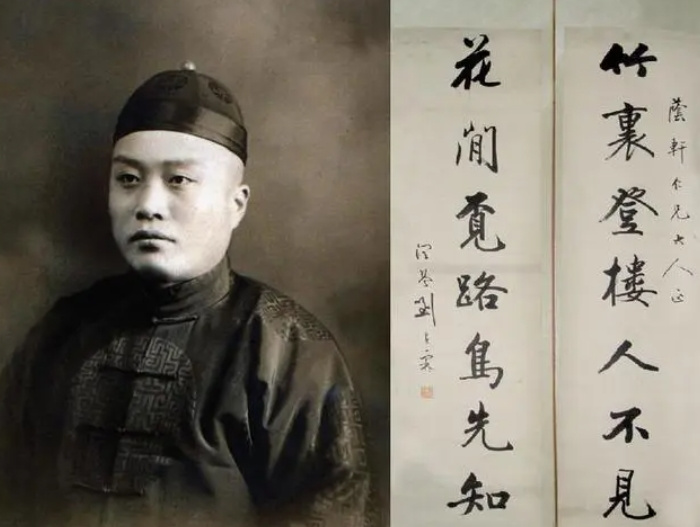 竹裏登樓人不見
蔭軒仁兄大人正
花間覓路鳥先知
潤琴劉春霖